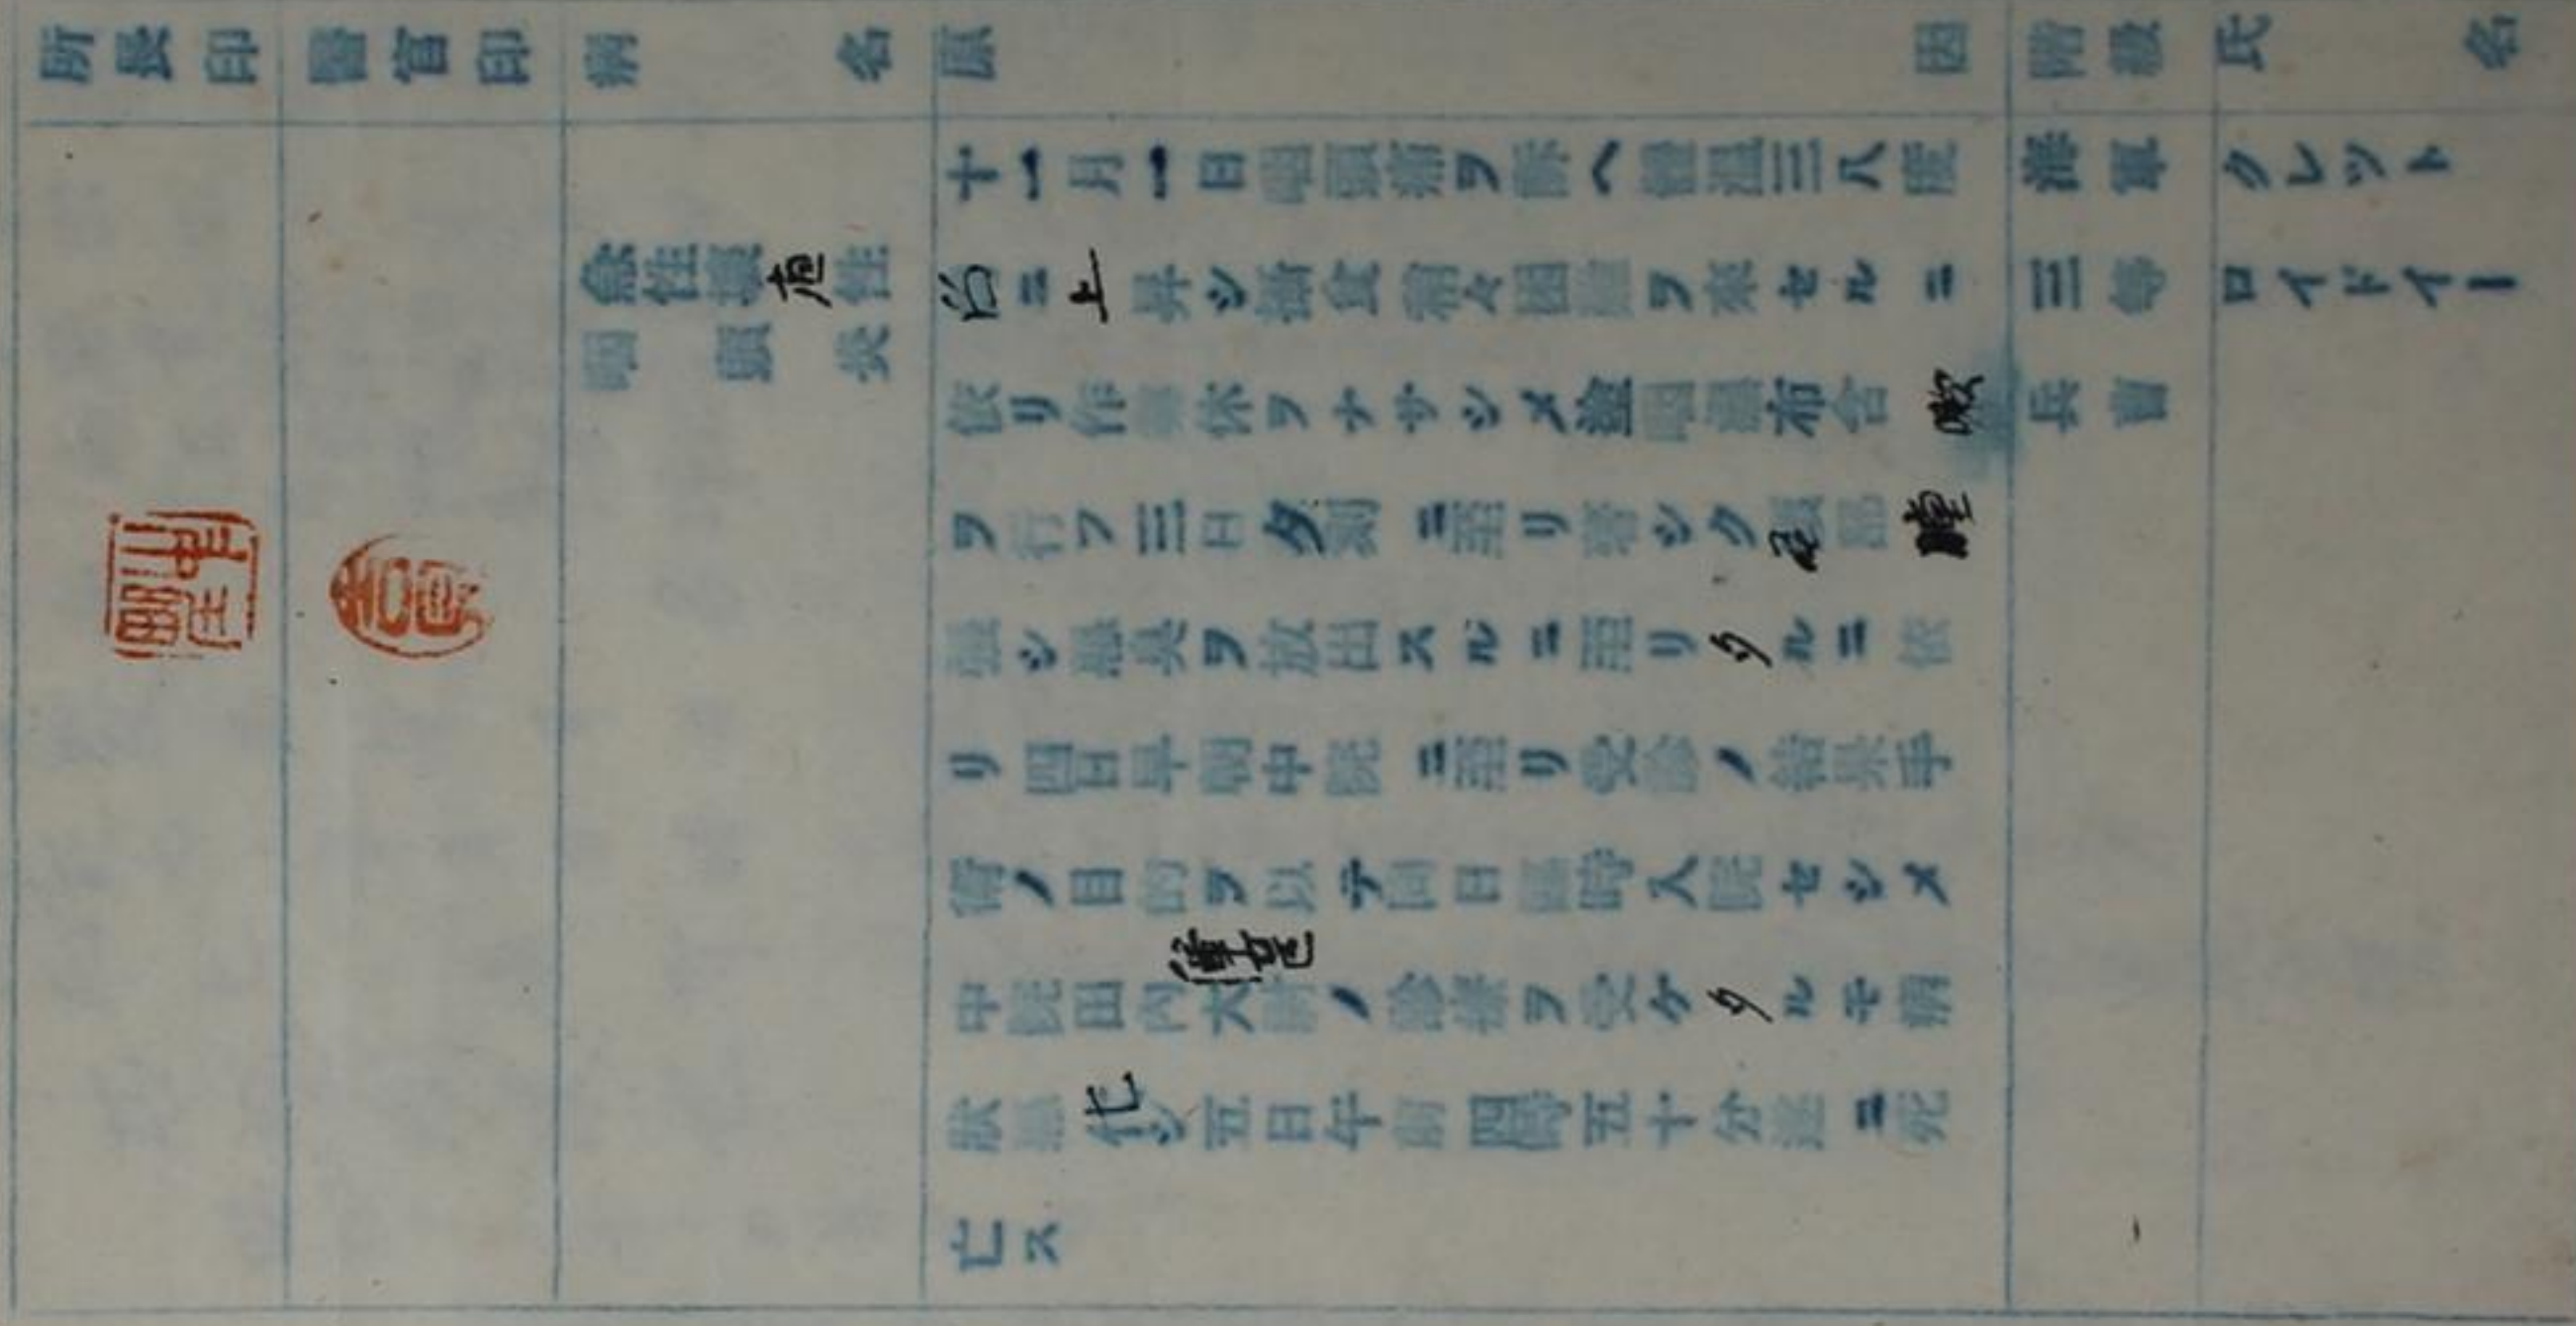 氏名
クレツト
ロイドイー
階級
海軍
三等
兵曹
原因
十一月一日咽頭痛ヲ訴ヘ體温三八度
台ニ上昇シ攝食稍々困難ヲ來セルニ
依リ作業休ヲナサシメ塗咽濕布含嗽
ヲ行フ三日夕刻ニ至リ著シク 腫
シ惡臭ヲ放出スルニ至リタルニ依
リ四日早朝中院ニ至リ受診ノ結果手
術ノ目的ヲ以テ同日臨時入院セシメ
中院田内大 ノ診療ヲ受ケタルモ病
狀惡化シ五日午前四時五十分遂ニ死
亡ス
病名
急性壞疽性
咽頭炎
醫官印
所長印